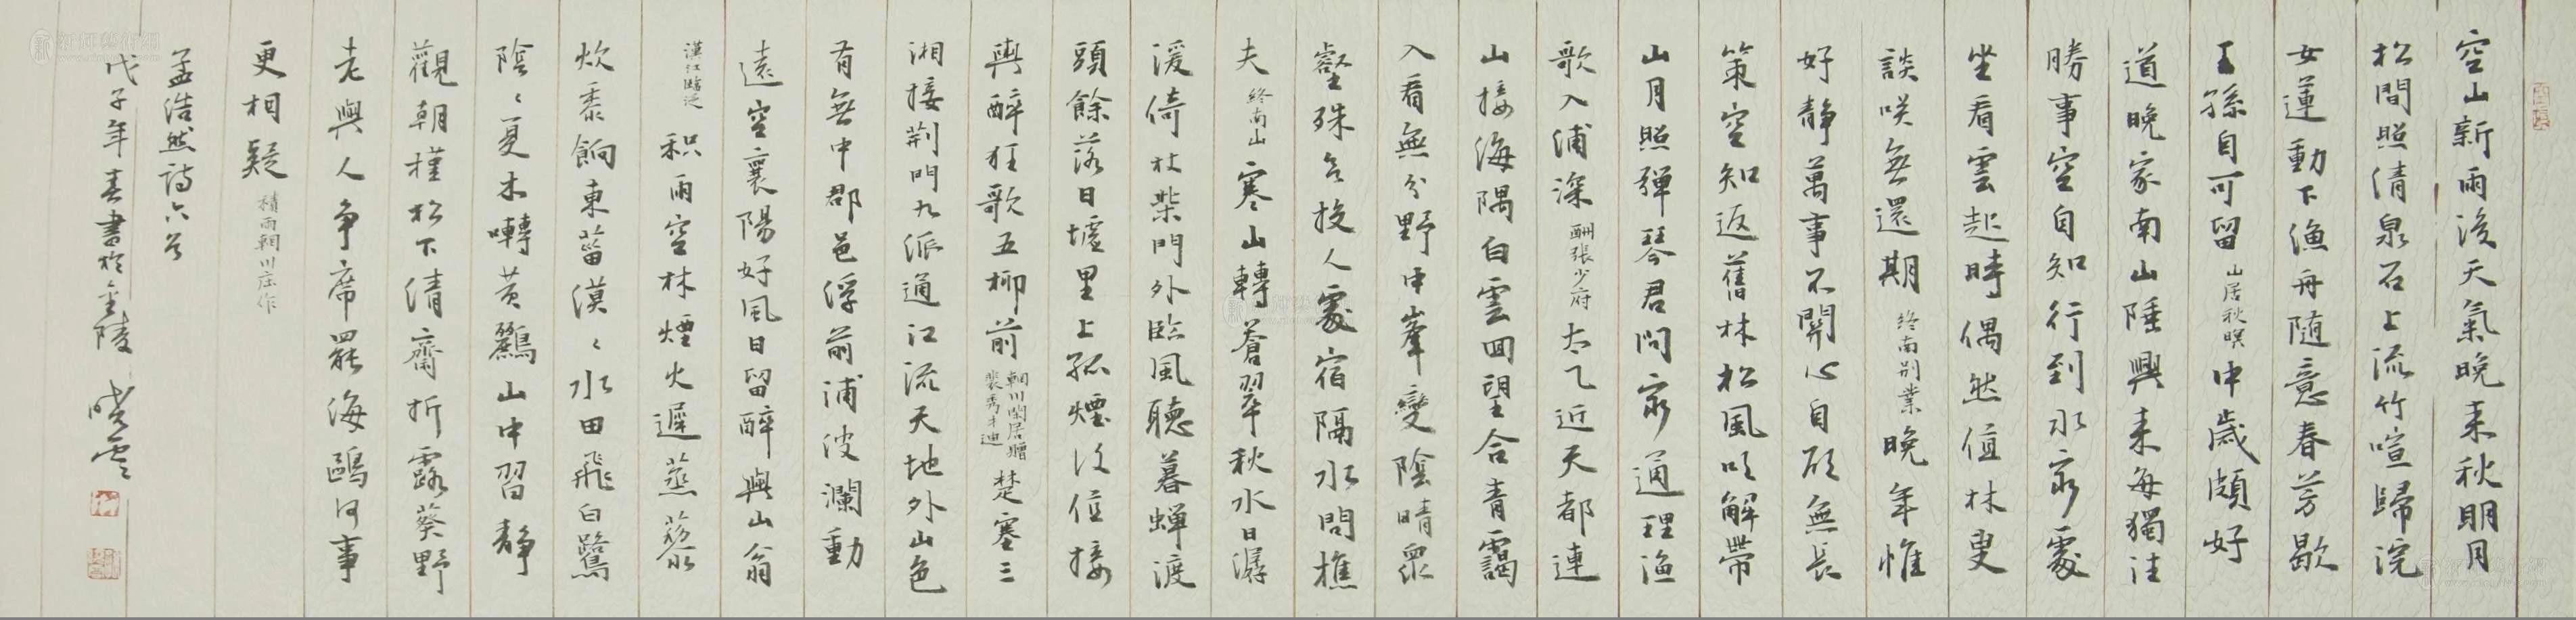 空山新雨後天氣晚来秋明月
松間照清泉石上流竹喧歸浣
女蓮動下漁舟随意春芳歇
王孫自可留 山居秋暝 中歲頗好
道晚家南山陲興来每獨往
勝事空自知行到水窮處
坐看雲起時偶然值林叟
談咲無還期 終南别業 晚年惟
好静萬事不關心自顧無長
策空知返舊林松風吹解帶
山月照彈琴君問窮通理漁
歌入浦深 酬張少府 太乙近天都連
山接海隅白雲回望合青靄
入看無分野中峯變陰晴衆
壑殊欲投人處宿隔水問樵
夫 終南山 寒山轉蒼翠秋水日潺
湲倚杖柴門外臨風聽暮蝉渡
頭餘落日墟里上孤煙復值接
輿醉狂歌五柳前 輞川閑居贈裴秀才迪 楚塞三
湘接荆門九派通江流天地外山色
有無中郡邑浮前浦波瀾動
遠空襄陽好風日留醉與山翁
漢江臨泛 积雨空林煙火遲蒸藜
炊黍餉東菑漠〻水田飛白鷺
陰〻夏木囀黄鸝山中習静
觀朝槿松下清齋折露葵野
老與人争席罷海鷗何事
更相疑 積雨輞川庄作
孟浩然詩六首
戊子年春書於金陵 曉雲
新輝藝術網